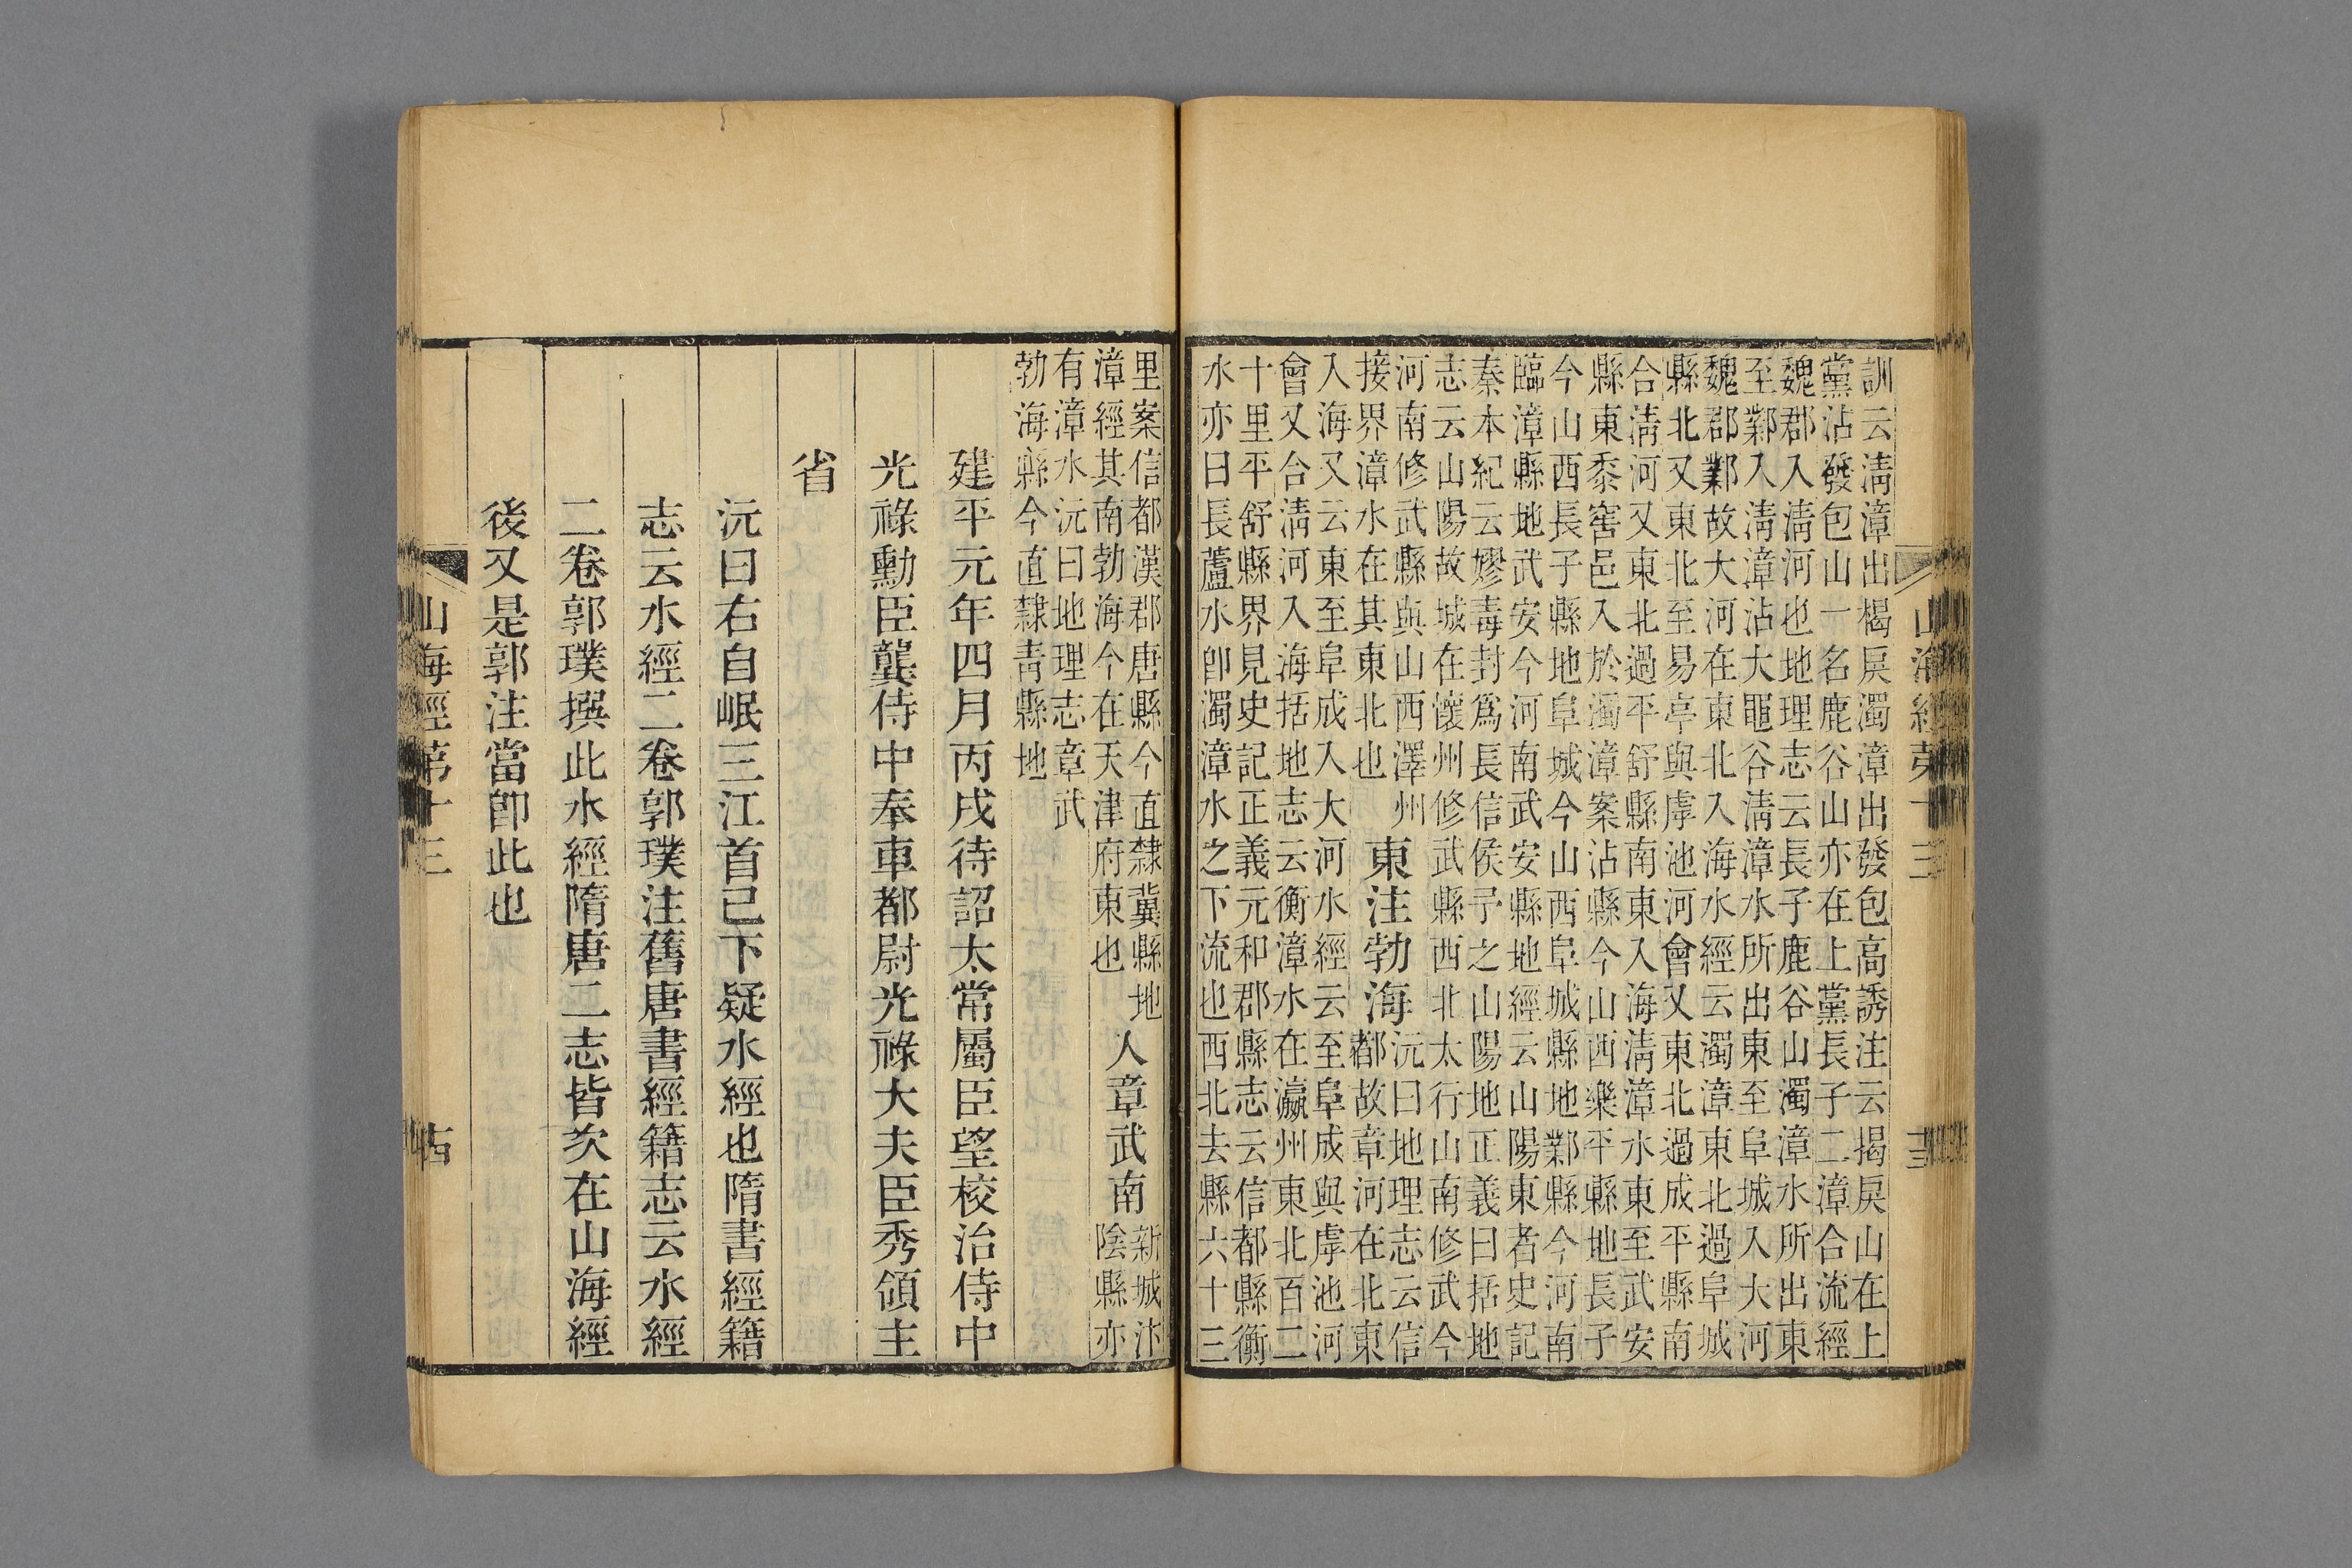 訓云淸漳出楬戾濁漳出發包高誘注云揭戾山在上
黨沾發包山一名鹿谷山亦在上黨長子二漳合流經
魏郡入淸河也地理志云長子鹿谷山濁漳水所出東
至鄴入淸漳沾大黽谷淸漳水所出東至阜城入大河
魏郡鄴故大河在東北入海水經云濁漳東北過阜城
縣北又東北至易亭與虖池河會又東北過成平縣南
合淸河又東北過平舒縣南東入海淸漳水東至武安
縣東黍窖邑入於濁漳案沾縣今山西樂平縣地長子
今山西長子縣地阜城今山西阜城縣地鄴縣今河南
臨漳縣地武安今河南武安縣地經云山陽東者史記
秦本紀云嫪毐封爲長信侯予之山陽地正義曰括地
志云山陽故城在懷州修武縣西北太行山南修武今
河南修武縣與山西澤州
接界漳水在其東北也
東注勃海
沅曰地理志云信
都故章河在北東
入海又云東至阜成入大河水經云至阜成與虖池河
會又合淸河入海括地志云衡漳水在瀛州東北百二
十里平舒縣界見史記正義元和郡縣志云信都縣衡
水亦曰長蘆水卽濁漳水之下流也西北去縣六十三
山海經第十三
十三
里案信都漢郡唐縣今直隸冀縣地
漳經其南勃海今在天津府東也
人章武南
新城汴
陰縣亦
有漳水沅曰地理志章武
勃海縣今直隸靑縣地
建平元年四月丙戌待詔太常屬臣望校治侍中
光祿勳臣龔侍中奉車都尉光祿大夫臣秀領主
省
沅曰右自岷三江首已下疑水經也隋書經籍
志云水經二卷郭璞注舊唐書經籍志云水經
二卷郭璞撰此水經隋唐二志皆次在山海經
後又是郭注當卽此也
山海經第十三